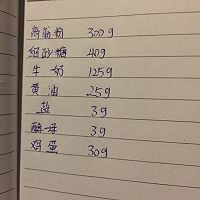 高筋粉 300g
细砂糖 40g
牛奶 125g
黄油 25g
盐 3g
酵母 3g
鸡蛋 30g